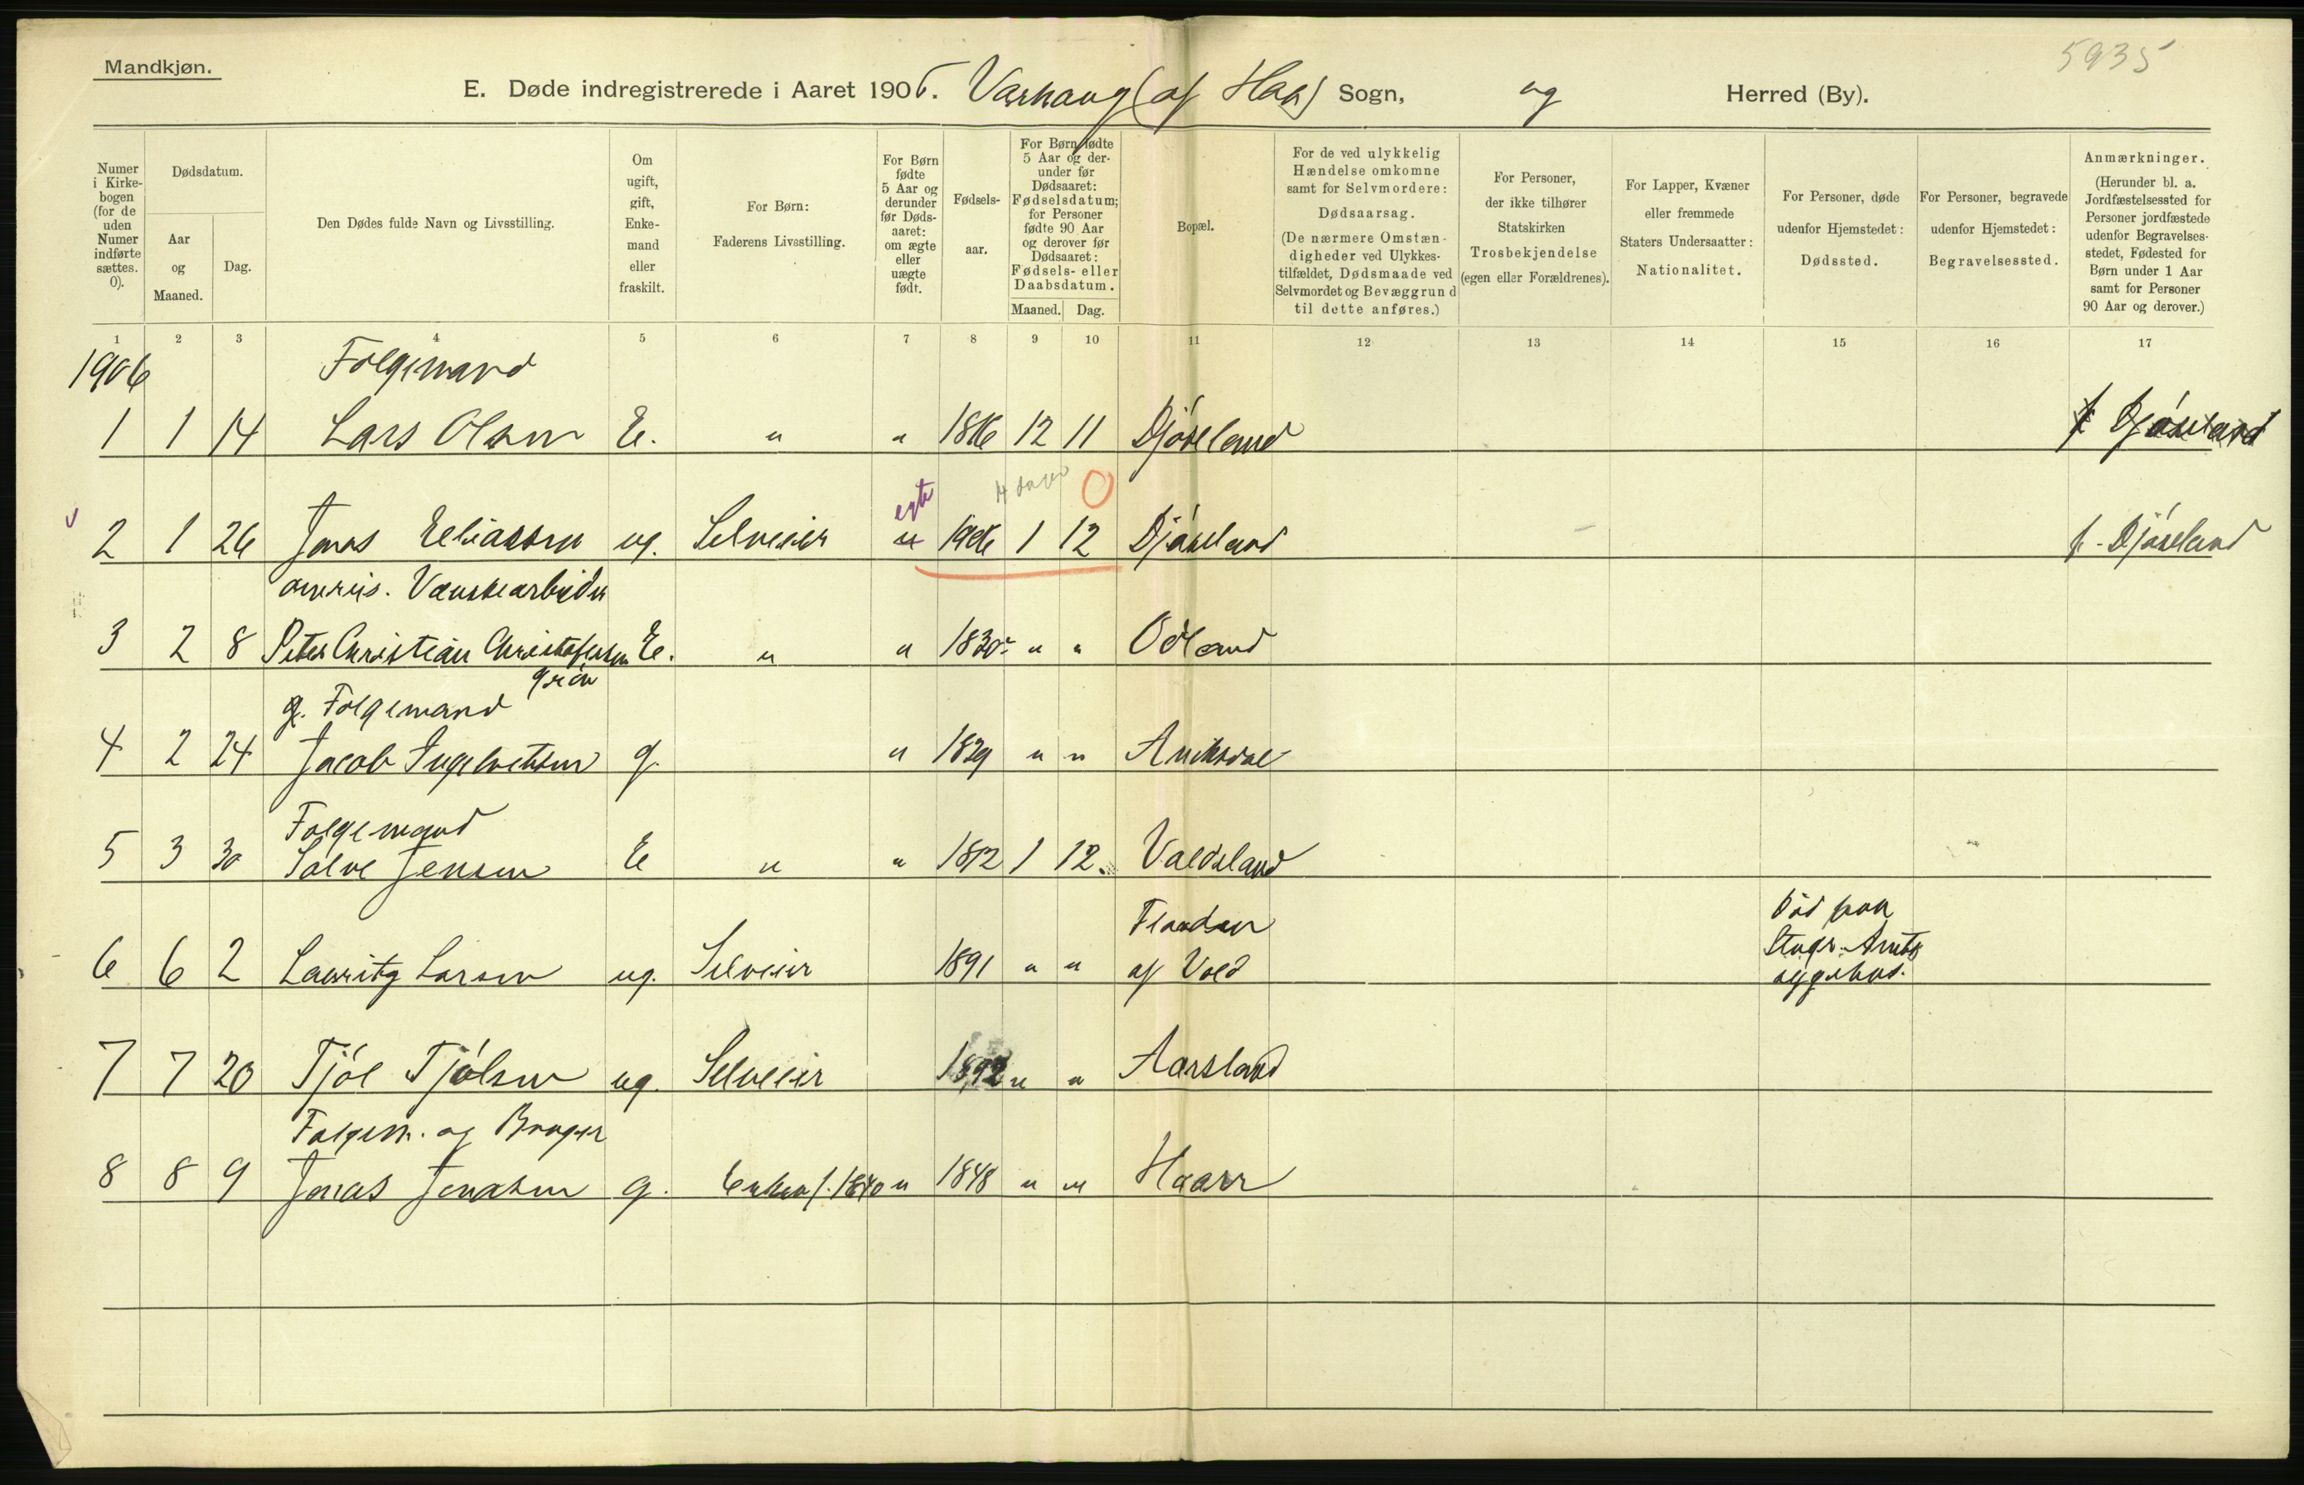 5935
Mandkjøn.
E. Døde indregistrerede i Aaret 1906. Varhaug (af Haa) Sogn, og Herred (By).
Numer i Kirkebogen (for de uden Numer indførte sættes. 0).
Dødsdatum.
Aar og Maaned.
Dag.
Den Dødes fulde Navn og Livsstilling.
Om ugift, gift, Enkemand eller fraskilt.
For Børn: Faderens Livsstilling.
For Børn fødte 5 Aar og derunder før Dødsaaret: om ægte eller uægte født.
Fødselsaar.
For Børn fødte 5 Aar og derunder før Dødsaaret: Fødselsdatum; for Personer fødte 90 Aar og derover før Dødsaaret: Fødsels- eller Daabsdatum.
Maaned. Dag.
Bopæl.
For de ved ulykkelig Hændelse omkomne samt for Selvmordere: Dødsaarsag. (De nærmere Omstændigheder ved Ulykkestilfældet, Dødsmaade ved Selvmordet og Bevæggrund til dette anføres.)
For Personer, der ikke tilhører Statskirken Trosbekjendelse (egen eller Forældrenes).
For Lapper, Kvæner eller fremmede Staters Undersaatter: Nationalitet.
For Personer, døde udenfor Hjemstedet: Dødssted.
For Personer, begravede udenfor Hjemstedet: Begravelsessted.
Anmærkninger. (Herunder bl. a. Jordfæstelsessted for Personer jordfæstede udenfor Begravelsesstedet, Fødested for Børn under 1 Aar samt for Personer 90 Aar og derover.)
1 2 3 4 5 6 7 8 9 10 11 12 13 14 15 16 17
1906 Folgemand
1 1 14 Lars Olsen E. " " 1816 12 11 Djøseland f. Djøseland
egte 14 dage 0
2 1 26 Jonas Eeliassen ug. Selveier " 1906 1 12 Djøseland f. Djøseland
3 2 8 Peter Christian Christofersen E. " " 1830 " " Odland
Grøn
g. Folgemand
4 2 24 Jacob Ingebretsen g. " 1829 " " Aniksdal
Folgemand
5 3 30 Salve Jensen E " " 1812 1 12. Valdsland
død paa
6 6 2 Lauritz Larsen ug. Selveier 1891 " " af Vold Stvgr. Amts
sygehus.
7 7 20 Tjøl Tjølsen ug. Selveier 1892 " " Aarsland
Folgem. og Bruger
8 8 9 Jonas Jonasen g. Enken f. 1840 " 1848 " " Haarr